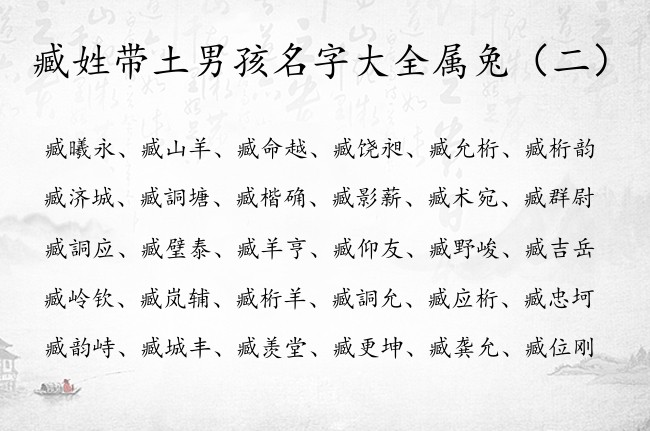 臧姓带土男孩名字大全属兔（二）
臧曦永、臧山羊、臧命越、臧饶昶、臧允桁、臧桁韵
臧济城、臧詷塘、臧楷确、臧影薪、臧术宛、臧群尉
臧詷应、臧璧泰、臧羊亨、臧仰友、臧野峻、臧吉岳
臧岭钦、臧岚辅、臧桁羊、臧詷允、臧应桁、臧忠坷
臧韵峙、臧城丰、臧羡堂、臧更坤、臧龚允、臧位刚